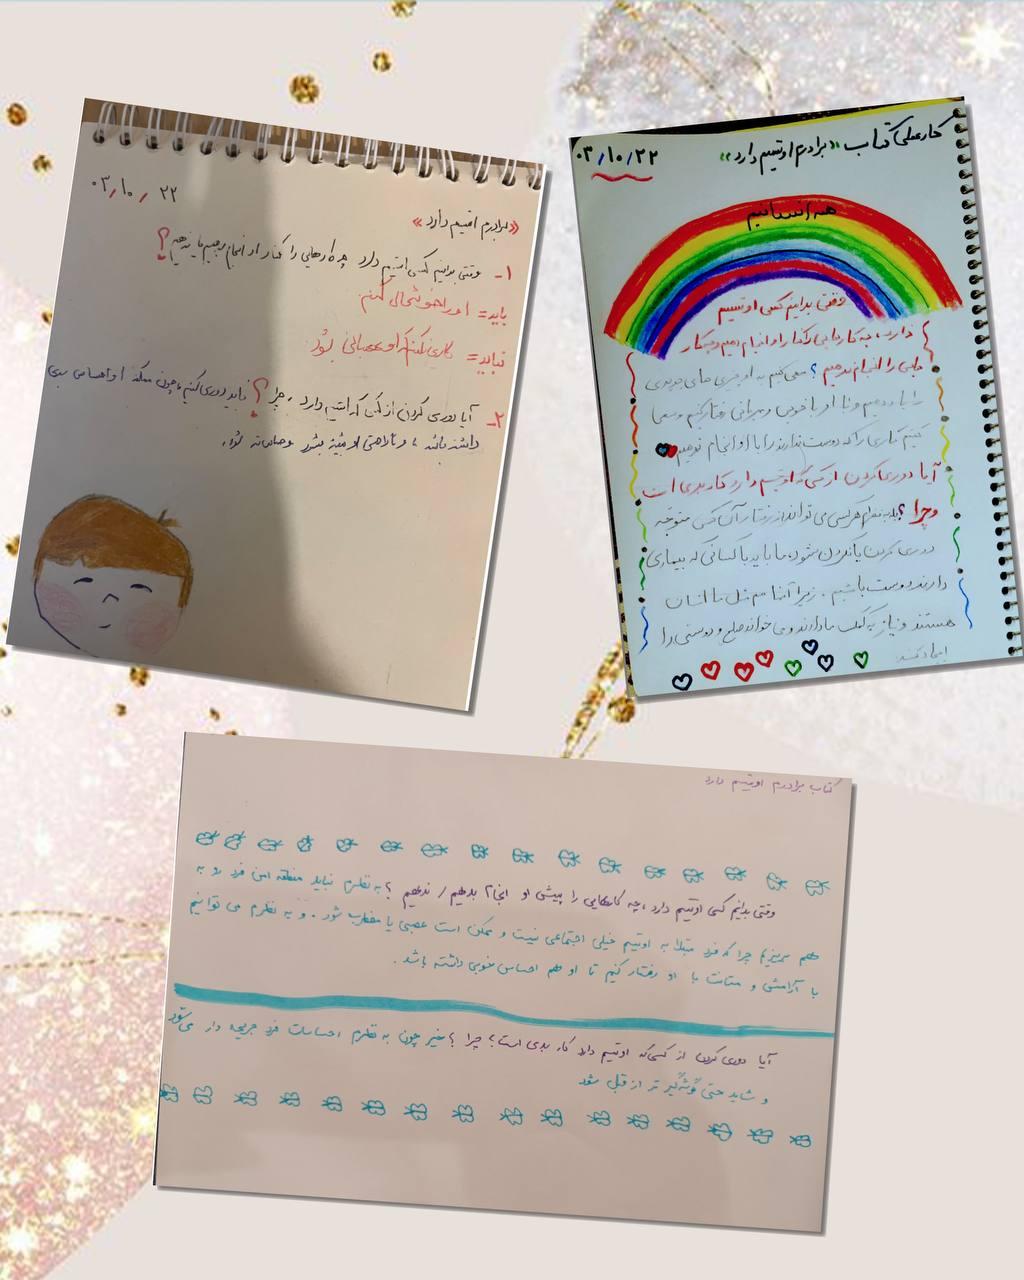 ۰۳/۱۰/۲۲
«برادرم اتیسم دارد»
۱- وقتی بدانیم کسی اتیسم دارد چه کارهایی را کنار او انجام بدهیم یا ندهیم؟
باید= او را خوشحال کنم
نباید= کاری کنم که او عصبانی بشود
۲- آیا دوری کردن از کسی که اتیسم دارد، چرا؟ نباید دوری کنیم چون ممکنه او احساس بدی
داشته باشد، و ناراحتی او بیشتر بشود و
کار عملی کتاب «برادرم اوتیسم دارد»
۰۳/۱۰/۲۲
همه انسانیم
وقتی بدانیم کسی اوتیسم
دارد، چه کارهایی را کنار او انجام دهیم و چه کار
هایی را انجام ندهیم؟ سعی کنیم به او چیزی های جدیدی
را یاد دهیم و با او با خوبی و مهربانی رفتار کنیم و سعی
کنیم کاری را که دوست ندارند را با او انجام ندهیم
آیا دوری کردن از کسی که اوتیسم دارد کار بدی است
و چرا؟ بله به نظرم هر کسی می تواند از رفتار آن کس متوجه
دوری کردن یا نکردن شود، ما باید با کسانی که بیماری
دارند دوست باشیم. زیرا آنها هم مثل ما انسان
هستند و نیاز به کمک ما دارند و می خواند صلح و دوستی را
ایجاد کنند.
کتاب برادرم اوتیسم دارد
وقتی بدانیم کسی اوتیسم دارد، چه کارهایی را پیش او انجام بدهیم / ندهیم؟ به نظرم نباید منطقه امن فرد رو به
هم بریزیم چرا که فرد مبتلا به اوتیسم خیلی اجتماعی نیست و ممکن است عصبی یا مضطرب شود. و به نظرم می توانیم
با آرامش و متانت با او رفتار کنیم تا او هم احساس خوبی داشته باشد.
آیا دوری کردن از کسی که اوتیسم دارد کار بدی است؟ چرا؟ خیر چون به نظرم احساسات فرد جریحه دار می شود
و شاید حتی گوشه گیر تر از قبل شود